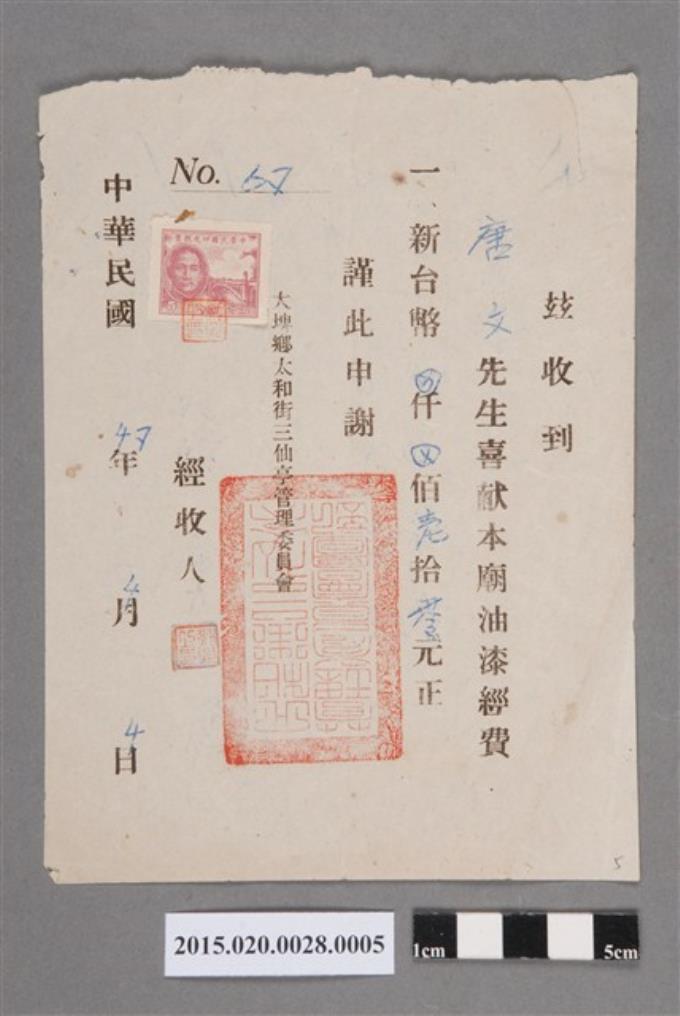 茲收到
唐文先生喜献本廟油漆經費
一、新台幣 仟 佰壱拾 元正
謹此申謝
大埤鄉太和街三仙亭管理委員會
經收人
No.
中華民國 年4月4日
5
2015.020.0028.0005
1cm
5cm